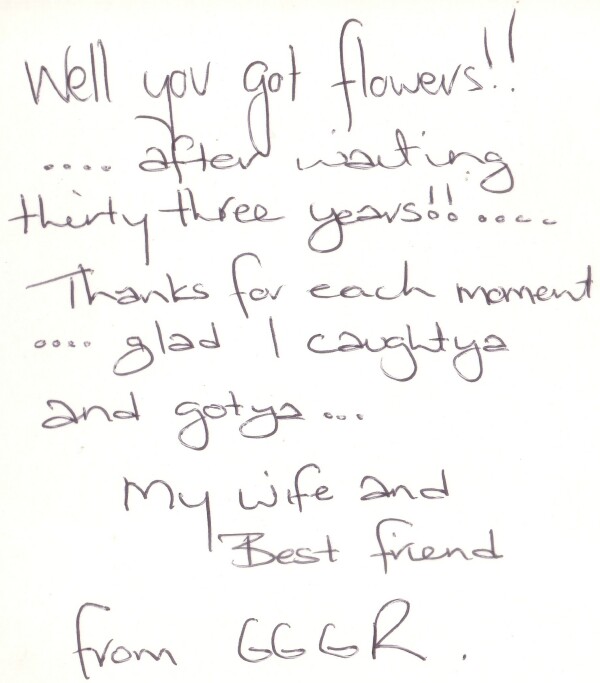 Well you got flowers!!
.... after waiting
thirty three years!! .....
Thanks for each moment
.... glad I caughtya
and gotya ...
My wife and
Best friend
from GGGR.